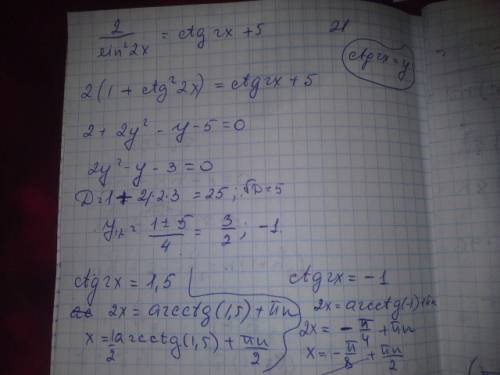 2/sin²2x = ctg2x + 5
21
ctg2x = y
2(1 + ctg²2x) = ctg2x + 5
2 + 2y² - y - 5 = 0
2y² - y - 3 = 0
D = 1 + 4·2·3 = 25; √D = 5
y₁,₂ = (1 ± 5)/4 = 3/2; -1.
ctg2x = 1,5
2x = arcctg(1,5) + πn
x = 1/2 arcctg(1,5) + πn/2
ctg2x = -1
2x = arcctg(-1) + πn
2x = -π/4 + πn
x = -π/8 + πn/2